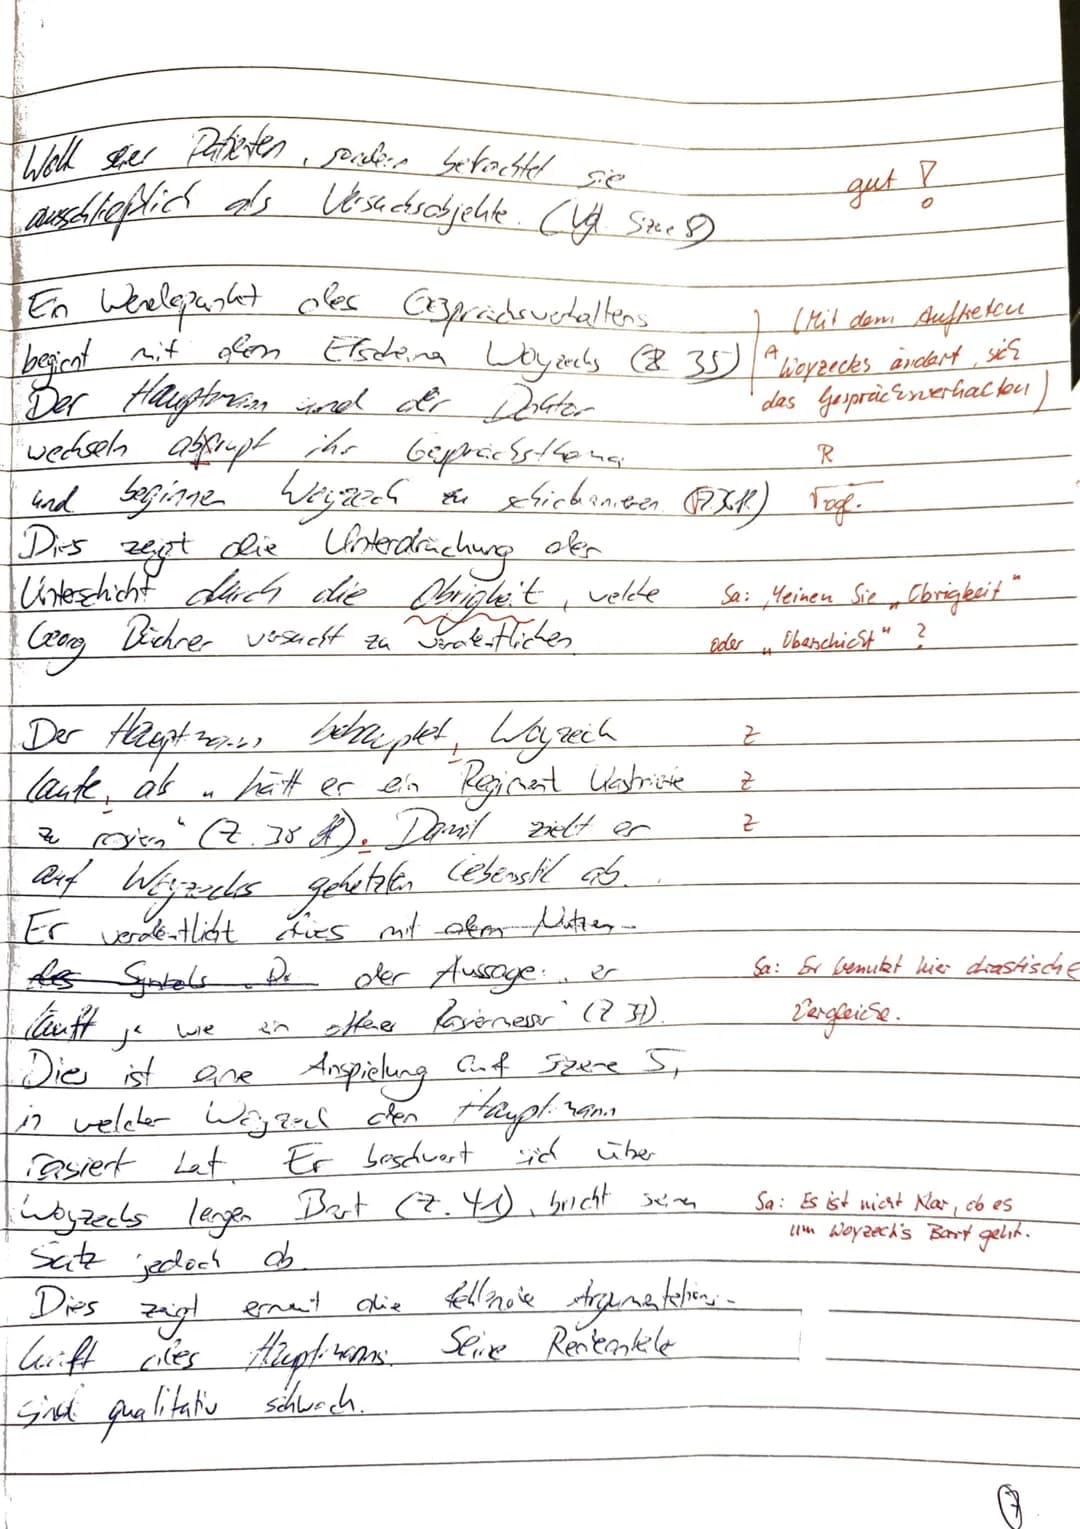 Wohl seiner Patienten, sondern betrachtet sie
ausschließlich als Versuchsobjekte. (Vgl. Szene 8)
gut!
Ein Wendepunkt des Gesprächsverhaltens
beginnt mit dem Erscheinen Woyzecks (Z. 35)
(Mit dem Auftreten
A Woyzecks ändert sich
das Gesprächsverhalten)
Der Hauptmann und der Doktor
wechseln abrupt ihr Gesprächsthema
R
und beginnen Woyzeck zu schickanieren
Dies zeigt die Unterdrückung der
Unterschicht durch die Obrigkeit, welche
Sa: Meinen Sie „Obrigkeit“
Georg Büchner versucht zu verdeutlichen.
oder „Oberschicht“?
Der Hauptmann behauptet, Woyzeck
Z
laufe, als „hätt er ein Regiment
Z
zu rasieren“ (Z. 38 ff). Damit zielt er
Z
auf Woyzecks gehetzten Lebensstil ab.
Er verdeutlicht dies mit dem Nutzen
des Symbols. Da der Aussage: er
Sa: Er benutzt hier drastische
Vergleiche.
läuft ja wie ein offenes Rasiermesser“ (Z. 37).
Dies ist eine Anspielung auf Szene 5,
in welcher Woyzeck den Hauptmann
rasiert hat. Er beschwert sich über
Woyzecks langen Bart (Z. 41), bricht seinen
Sa: Es ist nicht klar, ob es
um Woyzeck's Bart geht.
Satz jedoch ab.
Dies zeigt erneut die fehlende Argumentations-
kraft des Hauptmanns. Seine Redeanteile
sind qualitativ schwach.
7